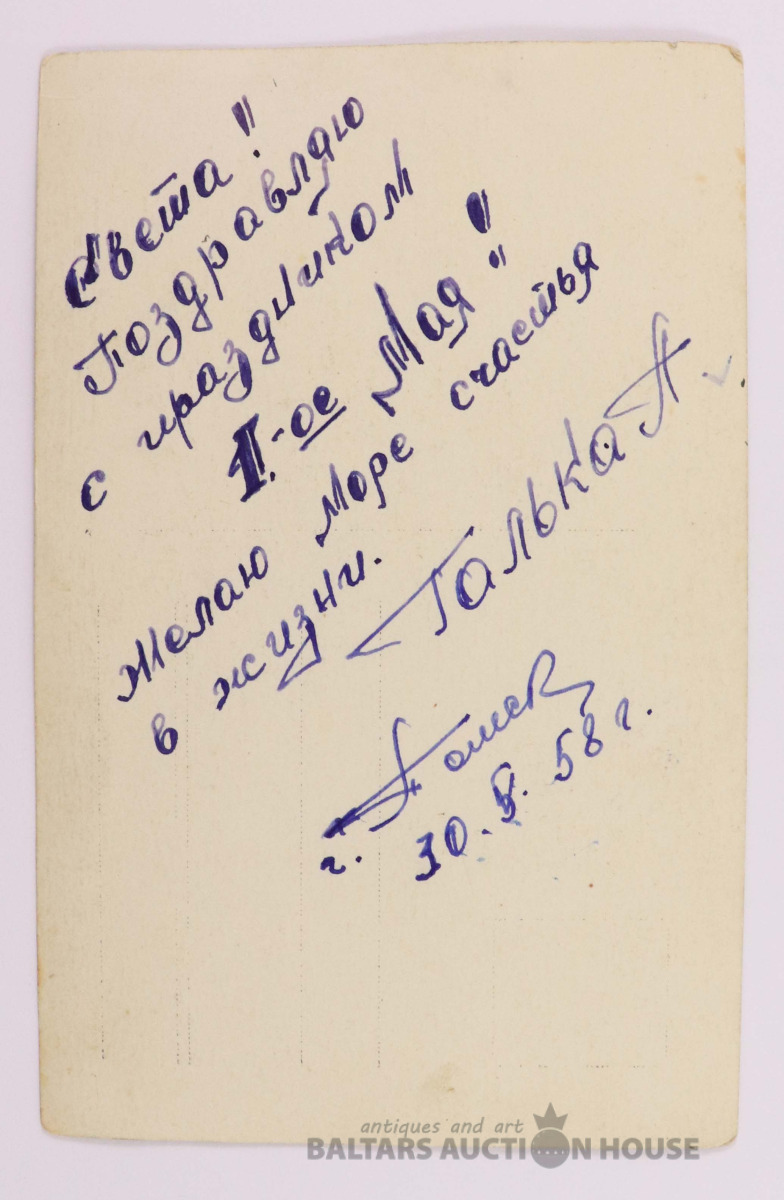 Света!
Поздравляю
с праздником
1-ое Мая!
Желаю море счастья
в жизни.
Галька П.
г. Томск
30. 58 г.
antiques and art
BALTARS AUCTION HOUSE